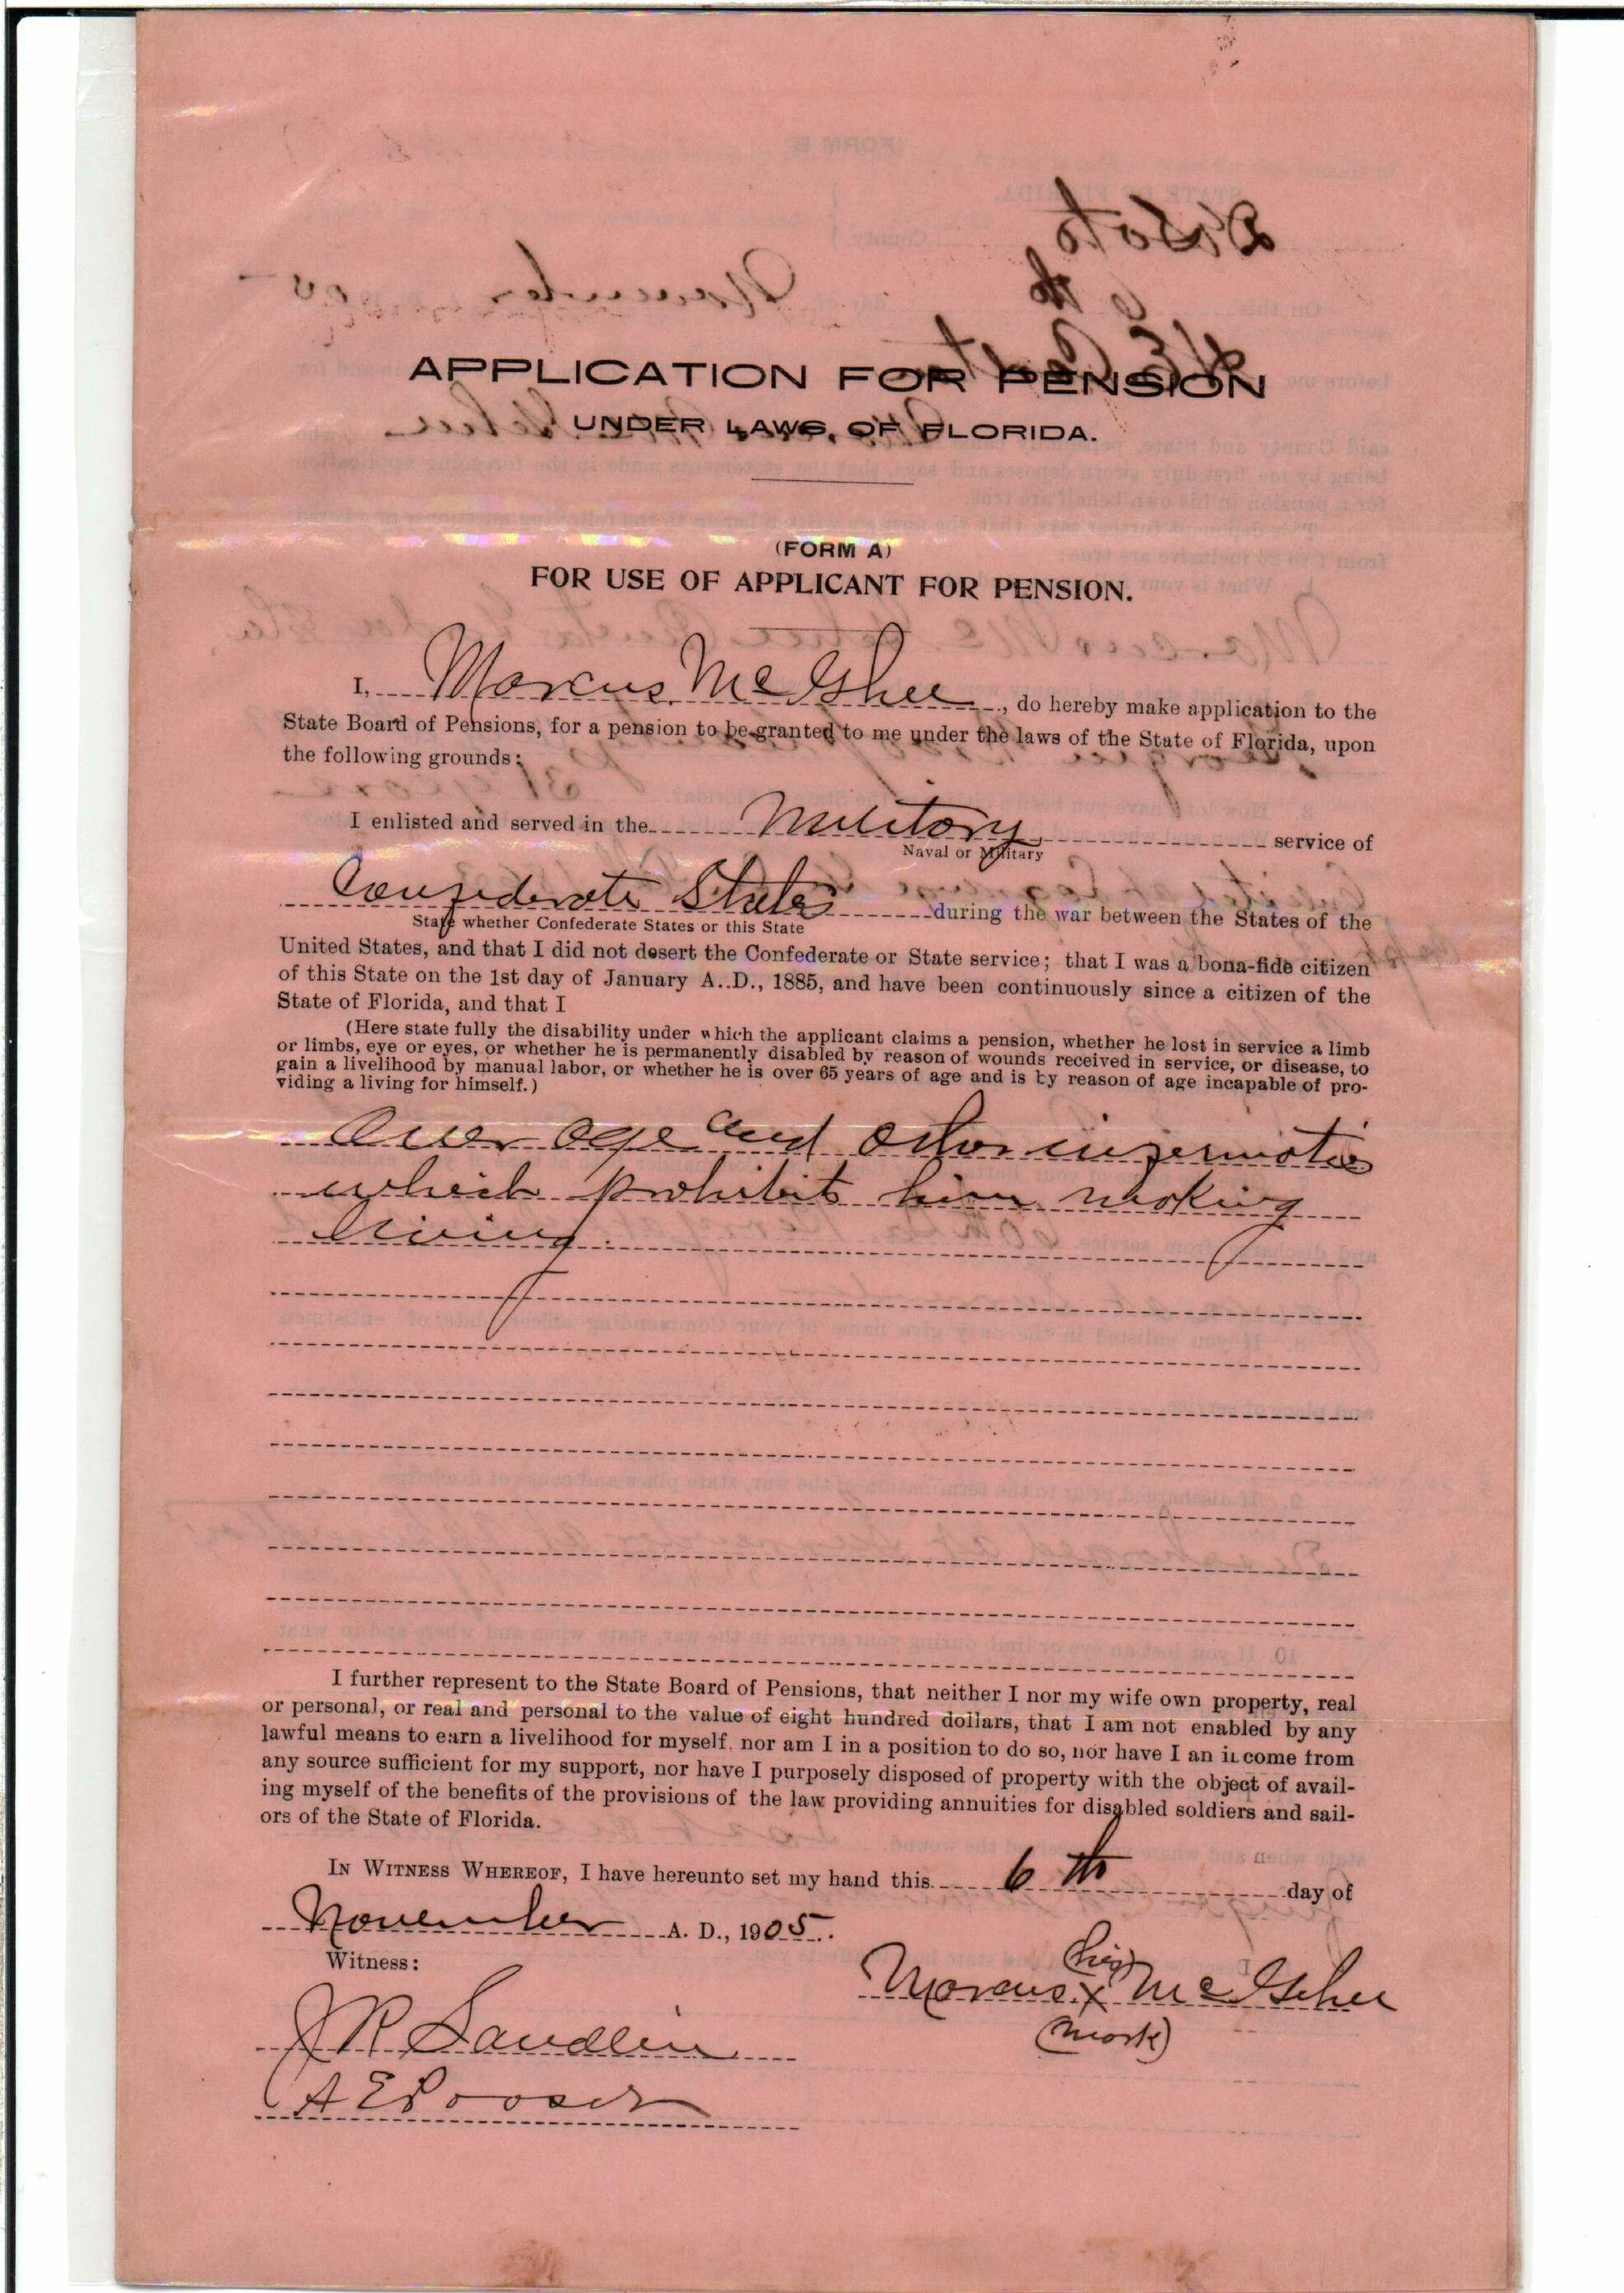 APPLICATION FOR PENSION
UNDER LAWS, OF FLORIDA.
(FORM A)
FOR USE OF APPLICANT FOR PENSION.
I, Marcus McGhee, do hereby make application to the
State Board of Pensions, for a pension to be granted to me under the laws of the State of Florida, upon
the following grounds:
I enlisted and served in the Military service of
Naval or Military
Confederate States during the war between the States of the
State whether Confederate States or this State
United States, and that I did not desert the Confederate or State service; that I was a bona-fide citizen
of this State on the 1st day of January A..D., 1885, and have been continuously since a citizen of the
State of Florida, and that I
(Here state fully the disability under which the applicant claims a pension, whether he lost in service a limb
or limbs, eye or eyes, or whether he is permanently disabled by reason of wounds received in service, or disease, to
gain a livelihood by manual labor, or whether he is over 65 years of age and is by reason of age incapable of pro-
viding a living for himself.)
Over age and other infermatis
which prohibit him making
living
I further represent to the State Board of Pensions, that neither I nor my wife own property, real
or personal, or real and personal to the value of eight hundred dollars, that I am not enabled by any
lawful means to earn a livelihood for myself, nor am I in a position to do so, nor have I an income from
any source sufficient for my support, nor have I purposely disposed of property with the object of avail-
ing myself of the benefits of the provisions of the law providing annuities for disabled soldiers and sail-
ors of the State of Florida.
IN WITNESS WHEREOF, I have hereunto set my hand this 6th day of
November A. D., 1905.
Witness:
(his)
Marcus X McGehee
(mark)
J R Sandlin
A E Pooser